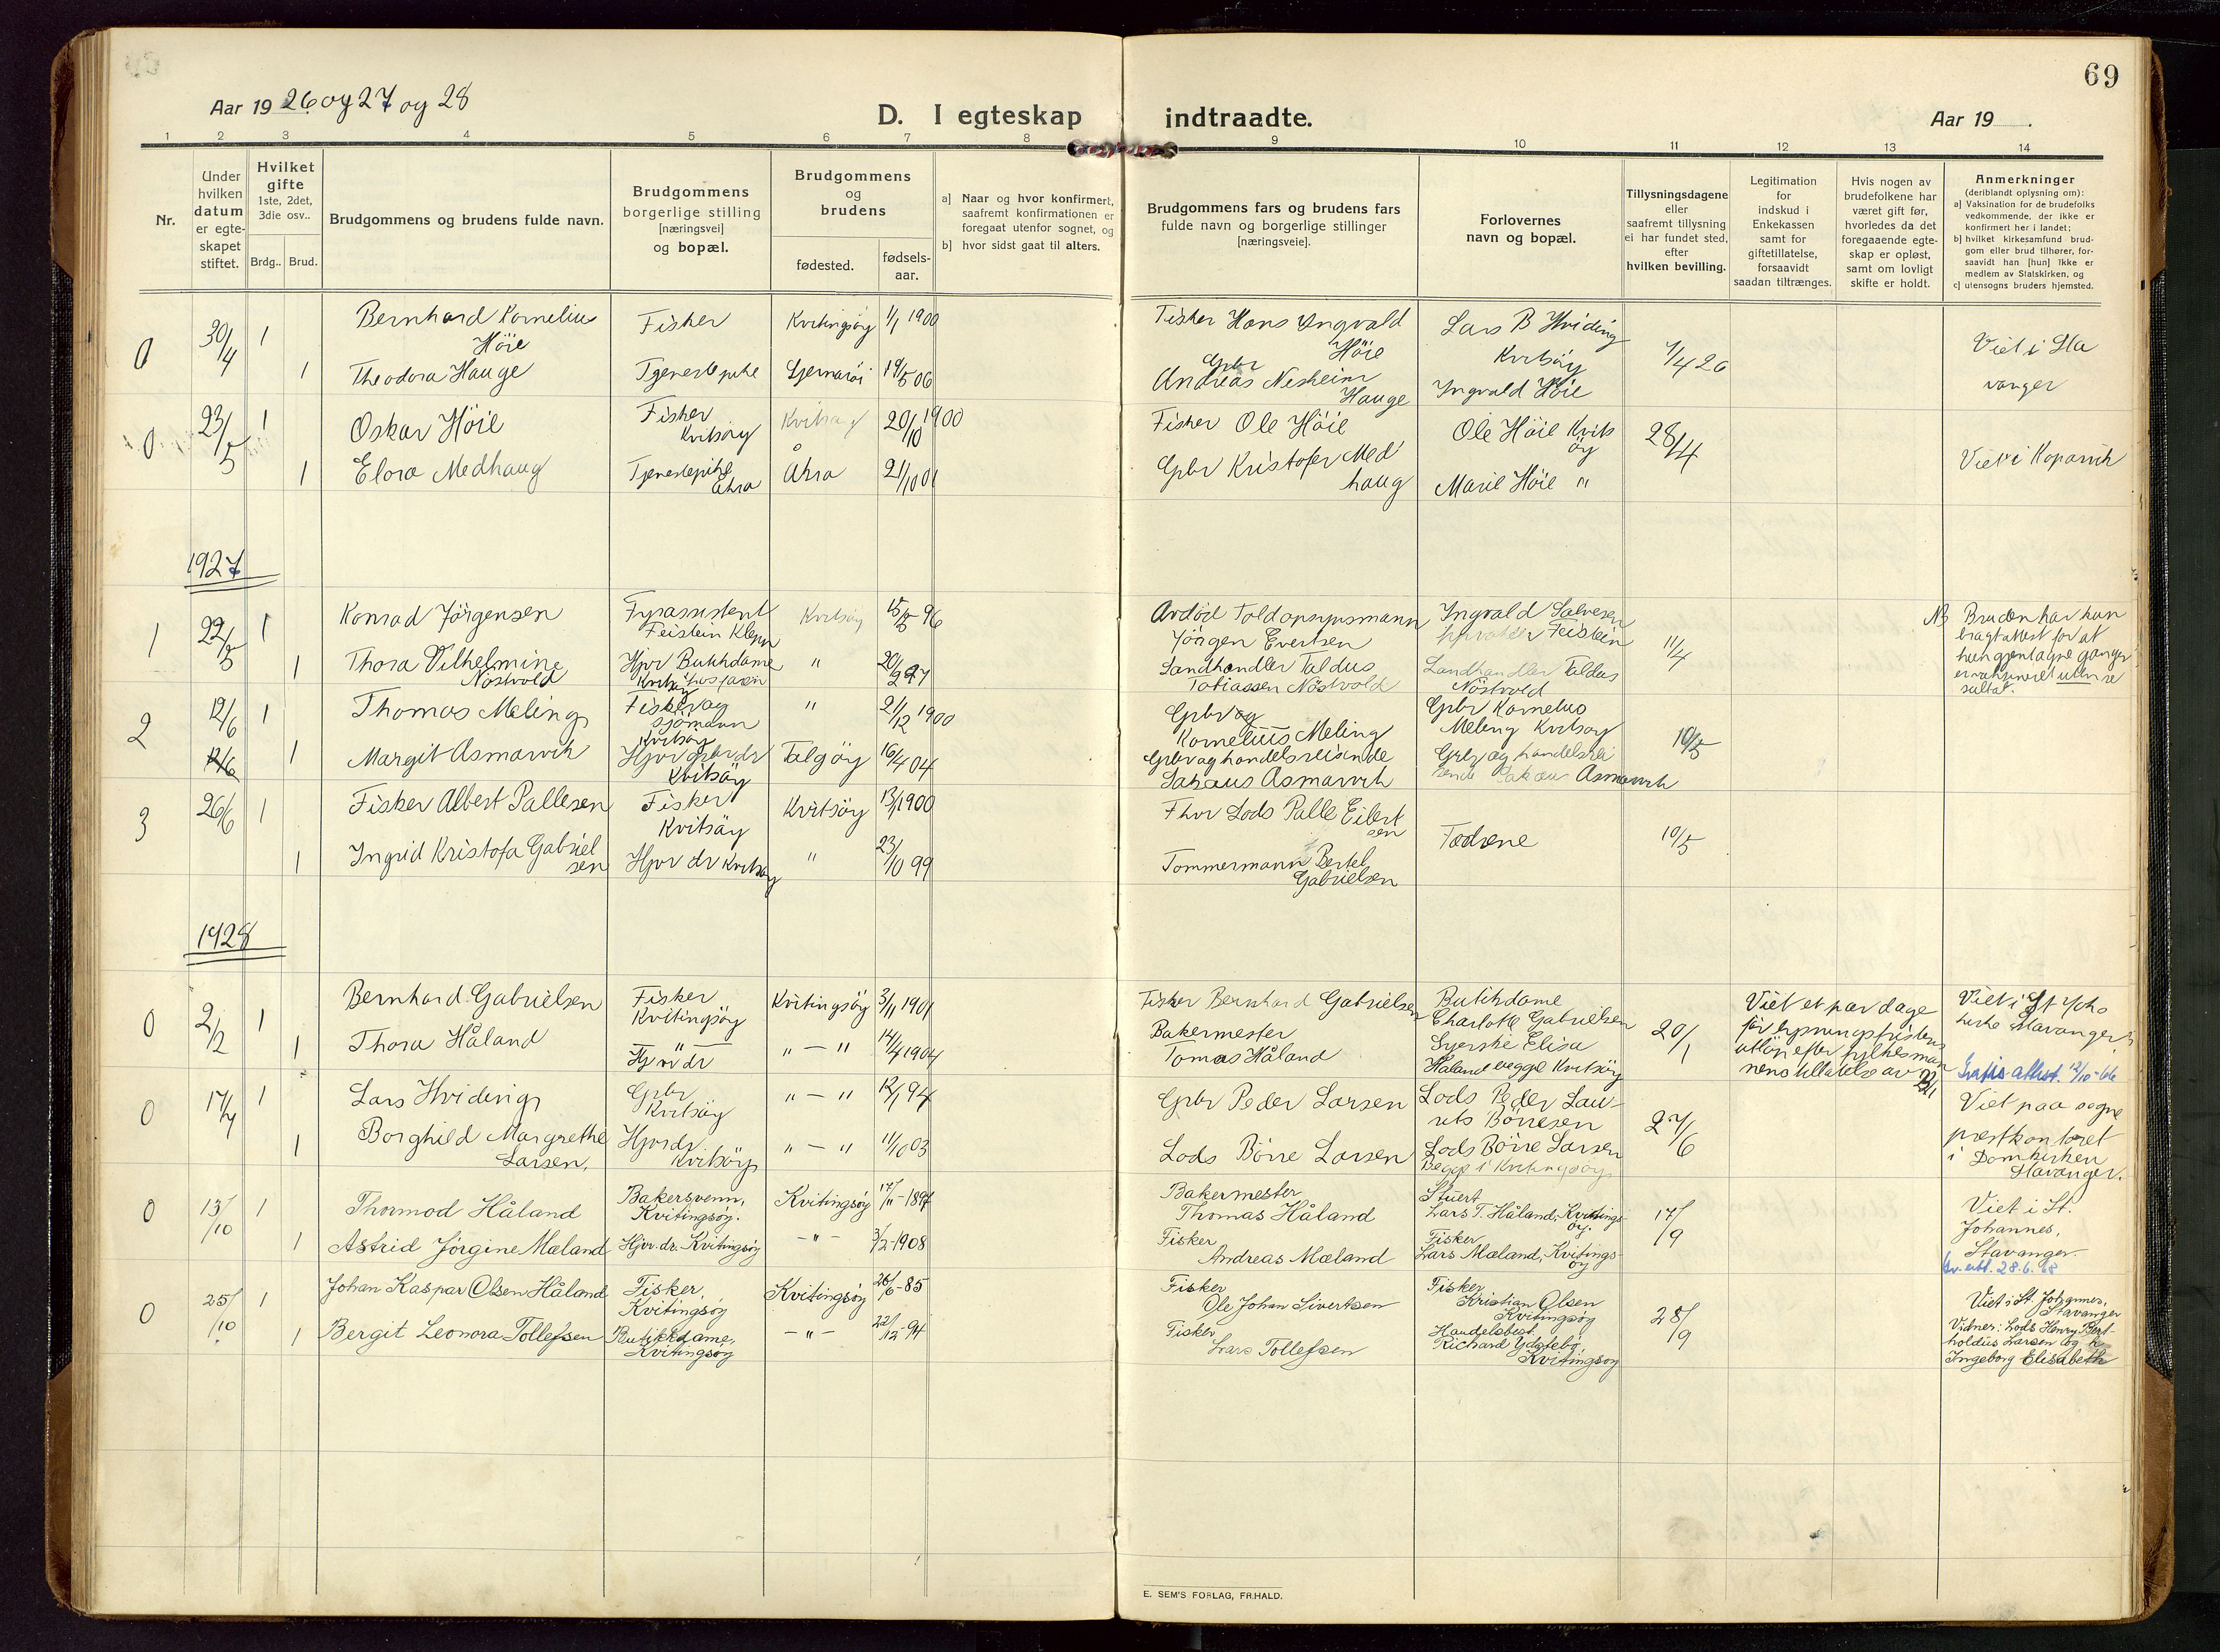 69
Aar 19 26 og 27 og 28
D. I egteskap indtraadte.
Aar 19 .
1 2 3 4 5 6 7 8 9 10 11 12 13 14
Nr.
Under hvilken datum er egteskapet stiftet.
Hvilket gifte 1ste, 2det, 3die osv..
Brdg.. Brud.
Brudgommens og brudens fulde navn.
Brudgommens borgerlige stilling [næringsvei] og bopæl.
Brudgommens og brudens
fødested. fødsels-aar.
a] Naar og hvor konfirmert, saafremt konfirmationen er foregaat utenfor sognet, og
b] hvor sidst gaat til alters.
Brudgommens fars og brudens fars fulde navn og borgerlige stillinger [næringsveie].
Forlovernes navn og bopæl.
Tillysningsdagene eller saafremt tillysning ei har fundet sted, efter hvilken bevilling.
Legitimation for indskud i Enkekassen samt for giftetillatelse, forsaavidt saadan tiltrænges.
Hvis nogen av brudefolkene har været gift før, hvorledes da det foregaaende egteskap er opløst, samt om lovligt skifte er holdt.
Anmerkninger
(deriblandt oplysning om):
a] Vaksination for de brudefolks vedkommende, der ikke er konfirmert her i landet;
b] hvilket kirkesamfund brudgom eller brud tilhører, forsaavidt han [hun] ikke er medlem av Statskirken, og
c] utensogns bruders hjemsted.
0 30/4 1 Bernhard Kornelius Höie Fisker Kvitingsöy 1/1 1900 Fisker Hans Yngvald Höie Lars B Hviding Kvitsöy 7/4 26 Viet i Stavanger
1 Theodora Hauge Tjenestepike Sjernaröi 19/5 06 Gpbr Andreas Nesheim Hauge Ingvald Höie
0 23/5 1 Oskar Höie Fisker Kvitsöy Kvitsöy 20/10 1900 Fisker Ole Höie Ole Höie Kvitsöy 28/4 Viet i Kopervik
1 Elora Medhaug Tjenestepike Åkra Åkra 21/10 01 Gpbr Kristofer Medhaug Marie Höie "
1927
1 22/5 1 Konrad Jörgensen Fyrassistent Feistein Klepp Kvitsöy 15/5 96 Avdöd Toldopsynsmann Jörgen Evertsen Ingvald Salvesen Feistein 11/4 NB Bruden har
1 Thora Vilhelmine Nöstvold Hjvr Butikdame Kvitsöy hos faren " 20/2 97 Landhandler Taldus Tobiassen Nöstvold Landhandler Taldus Nöstvold
2 12/6 1 Thomas Meling Fisker og sjömann Kvitsöy " 21/12 1900 Gpbr og Kornelius Meling Gpbr Kornelius Meling Kvitsöy 10/5
12/6 1 Margit Asmarvik Hjvr gpbr dr Kvitsöy Talgöy 16/4 04 Gpbr og handelsreisende Sakaus Asmarvik Gpbr og handelsreisende Sakaus Asmarvik
3 26/6 1 Fisker Albert Pallesen Fisker Kvitsöy Kvitsöy 13/1 1900 Fhv Lods Palle Eibertsen Fædrene 10/5
1 Ingrid Kristofa Gabrielsen Hjvr dr Kvitsöy " 23/10 99 Tommermann Bertel Gabrielsen
1928
0 2/2 1 Bernhard Gabrielsen Fisker Kvitingsöy Kvitingsöy 3/11 1901 Fisker Bernhard Gabrielsen Butikdame Charlotte Gabrielsen 20/1 Viet et par dage før lysningsfristens utlöp efter fylkesmannens tillatelse av Viet i St Joh kirke Stavanger
1 Thora Håland Hjvr dr " — " 14/4 1904 Bakermester Tomas Håland Syerske Elisa Håland begge Kvitsöy Gratis attest. 12/10-66
0 17/7 1 Lars Hviding Gpbr Kvitsöy " — " 12/1 94 Gpbr Peder Larsen Lods Peder Laurits Börresen 27/6 Viet paa sogneprestkontoret i Domkirken Stavanger.
1 Borghild Margrethe Larsen, Hjvr dr Kvitsöy " — " 11/10 03 Lods Börre Larsen Lods Börre Larsen Begge i Kvitingsöy
0 13/10 1 Thormod Håland Bakersvenn, Kvitingsöy. Kvitingsöy 17/11-1897 Bakermester Thomas Håland Stuert Lars T. Håland, Kvitingsöy. 17/9 Viet i St. Johannes, Stavanger.
1 Astrid Jörgine Mæland Hjv. dr. Kvitingsöy — " — 3/2-1908 Fisker Andreas Mæland Fisker Lars Mæland, Kvitingsöy 28.6.68
0 25/10 1 Johan Kaspar Olsen Håland Fisker, Kvitingsöy Kvitingsöy 26/6-85 Fisker Ole Johan Sivertsen Fisker Kristian Olsen Kvitingsöy 28/9 Viet i St. Johannes, Stavanger
1 Bergit Leonora Tollefsen Butikkdame, Kvitingsöy — " — 22/12-94 Fisker Lars Tollefsen Handelsbest. Richard Ydstebö, Kvitingsöy Vidner: Lods Henry Bertholdus Larsen og Ingeborg Elisabeth
E. SEM'S FORLAG, FR.HALD.